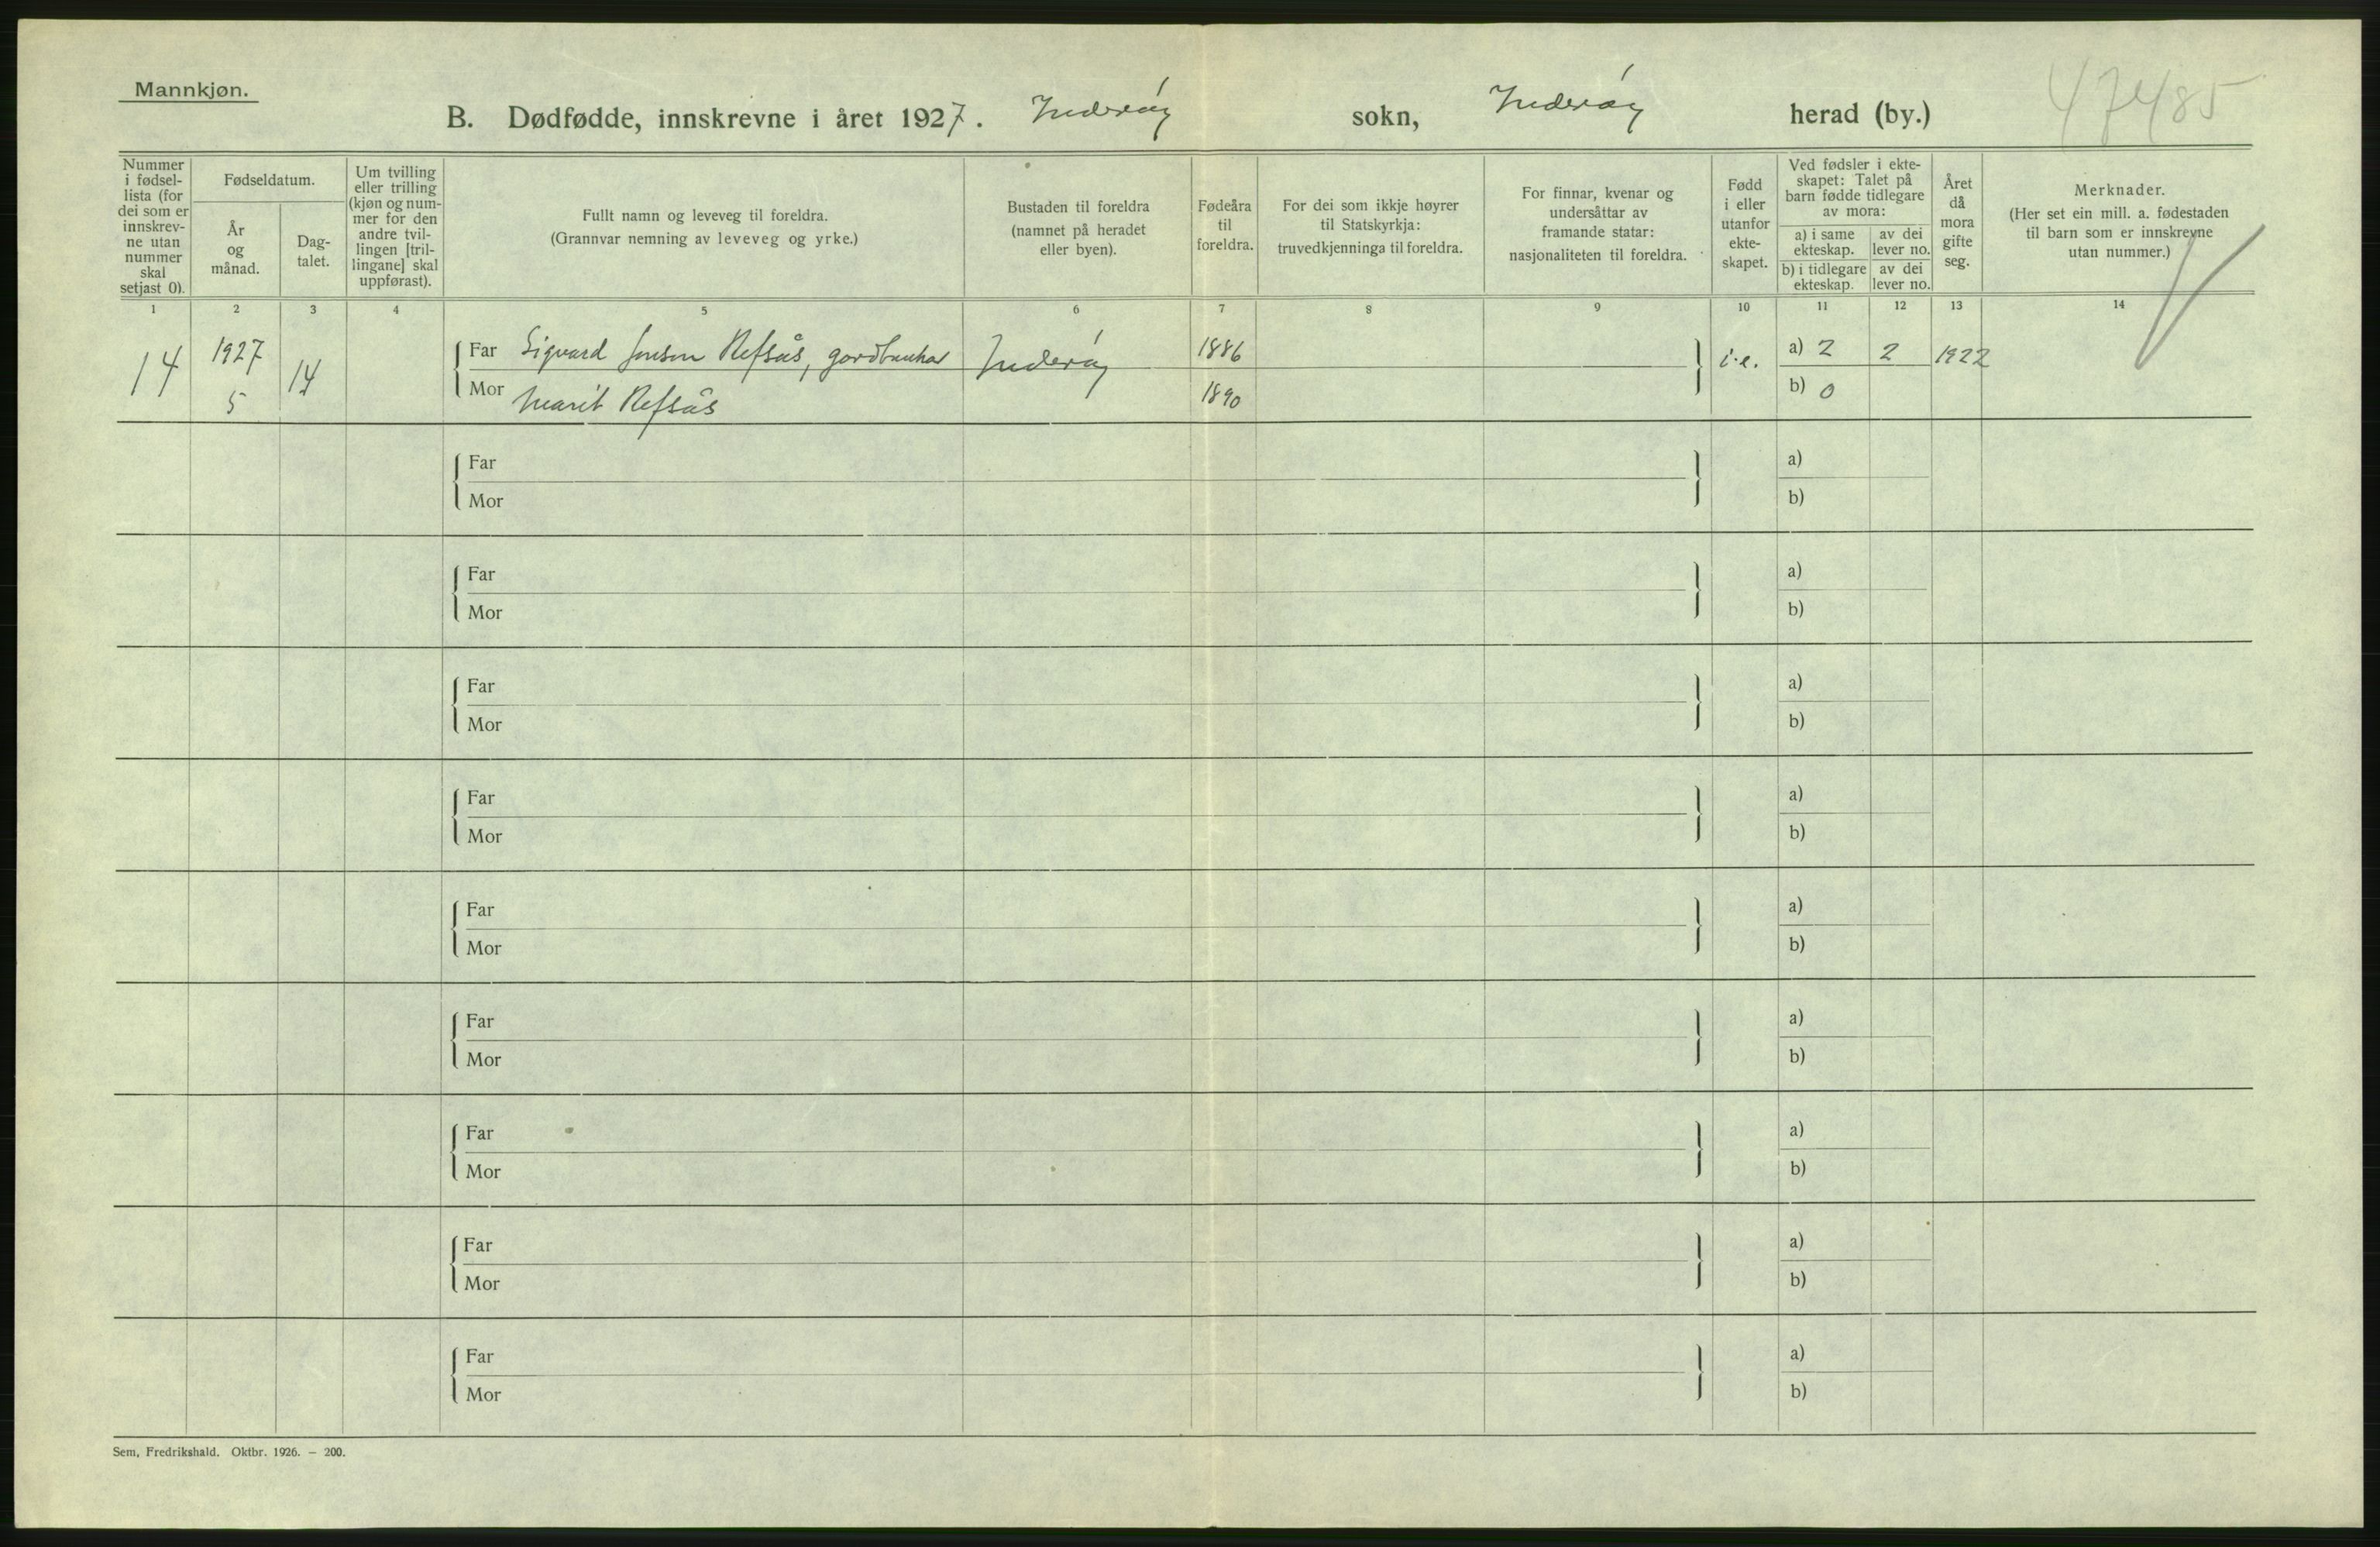 Mannkjøn.
B. Dødfødde, innskrevne i året 1927. Inderøy sokn, Inderøy herad (by.) 47485
Nummer i fødsel-lista (for dei som er innskrev-ne utan nummer skal setjast 0).
Fødseldatum.
År og månad.
Dag-talet.
Um tvilling eller trilling (kjøn og num-mer for den andre tvil-lingen [tril-lingane] skal uppførast).
Fullt namn og leveveg til foreldra.
(Grannvar nemning av leveveg og yrke.)
Bustaden til foreldra (namnet på heradet eller byen).
Fødeåra til foreldra.
For dei som ikkje høyrer til Statskyrkja: truvedkjenninga til foreldra.
For finnar, kvenar og undersåttar av framande statar: nasjonaliteten til foreldra.
Fødd i eller utanfor ekte-skapet.
Ved fødsler i ekte-skapet: Talet på barn fødde tidlegare av mora:
a) i same ekteskap.
av dei lever no.
b) i tidlegare ekteskap.
av dei lever no.
Året då mora gifte seg.
Merknader.
(Her set ein mill. a. fødestaden til barn som er innskrevne utan nummer.)
1 2 3 4 5 6 7 8 9 10 11 12 13 14
14 1927 5 14 Far Sigvard Jonson Refsås, gardbrukar Inderøy 1886 i.e. a) 2 2 1922
Mor Marit Refsås 1890 b) 0
Far a)
Mor b)
Far a)
Mor b)
Far a)
Mor b)
Far a)
Mor b)
Far a)
Mor b)
Far a)
Mor b)
Far a)
Mor b)
Far a)
Mor b)
Far a)
Mor b)
Sem, Fredrikshald. Oktbr. 1926. — 200.